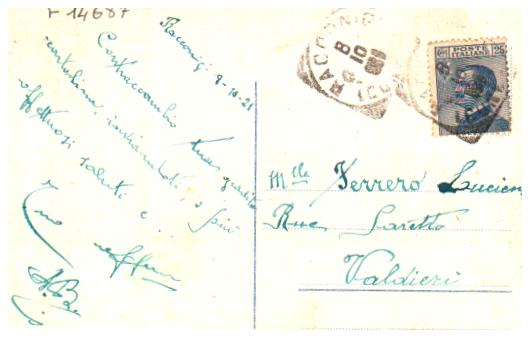 F 14687
Racconigi 9-10-21
Contraccambio tua gradita
cartolina, inviandoti i più
affettuosi saluti e
tuo
RACCONIGI
8
10
POSTE
ITALIANE
25
Mlle Ferrero Lucien
Rue Laretto
Valdieri